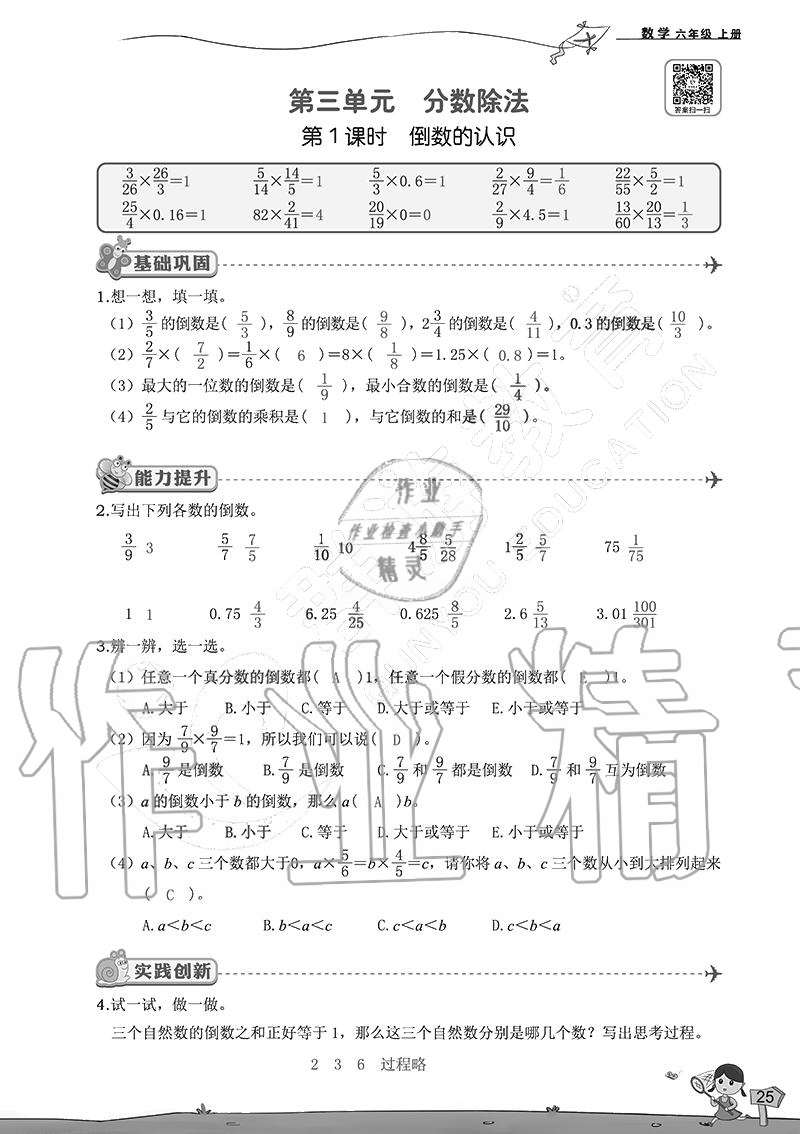 数学 六年级 上册
答案扫一扫
第三单元 分数除法
第1课时 倒数的认识
3/26×26/3=1 5/14×14/5=1 5/3×0.6=1 2/27×9/4=1/6 22/55×5/2=1
25/4×0.16=1 82×2/41=4 20/19×0=0 2/9×4.5=1 13/60×20/13=1/3
基础巩固
1.想一想，填一填。
（1）3/5的倒数是( 5/3 )，8/9的倒数是( 9/8 )，2 3/4的倒数是( 4/11 )，0.3的倒数是( 10/3 )。
（2）2/7×( 7/2 )=1/6×( 6 )=8×( 1/8 )=1.25×( 0.8 )=1。
（3）最大的一位数的倒数是( 1/9 )，最小合数的倒数是( 1/4 )。
（4）2/5与它的倒数的乘积是( 1 )，与它倒数的和是( 29/10 )。
能力提升
2.写出下列各数的倒数。
3/9 3 5/7 7/5 1/10 10 4 8/5 5/28 1 2/5 5/7 75 1/75
1 1 0.75 4/3 6.25 4/25 0.625 8/5 2.6 5/13 3.01 100/301
3.辨一辨，选一选。
（1）任意一个真分数的倒数都( A )1，任意一个假分数的倒数都( E )1。
A.大于 B.小于 C.等于 D.大于或等于 E.小于或等于
（2）因为7/9×9/7=1，所以我们可以说( D )。
A.9/7是倒数 B.7/9是倒数 C.7/9和9/7都是倒数 D.7/9和9/7互为倒数
（3）a的倒数小于b的倒数，那么a( A )b。
A.大于 B.小于 C.等于 D.大于或等于 E.小于或等于
（4）a、b、c三个数都大于0，a×5/6=b×4/5=c，请你将a、b、c三个数从小到大排列起来
( C )。
A.a<b<c B.b<a<c C.c<a<b D.c<b<a
实践创新
4.试一试，做一做。
三个自然数的倒数之和正好等于1，那么这三个自然数分别是哪几个数？写出思考过程。
2 3 6 过程略
25
作业
作业检查小助手
精灵
作业精